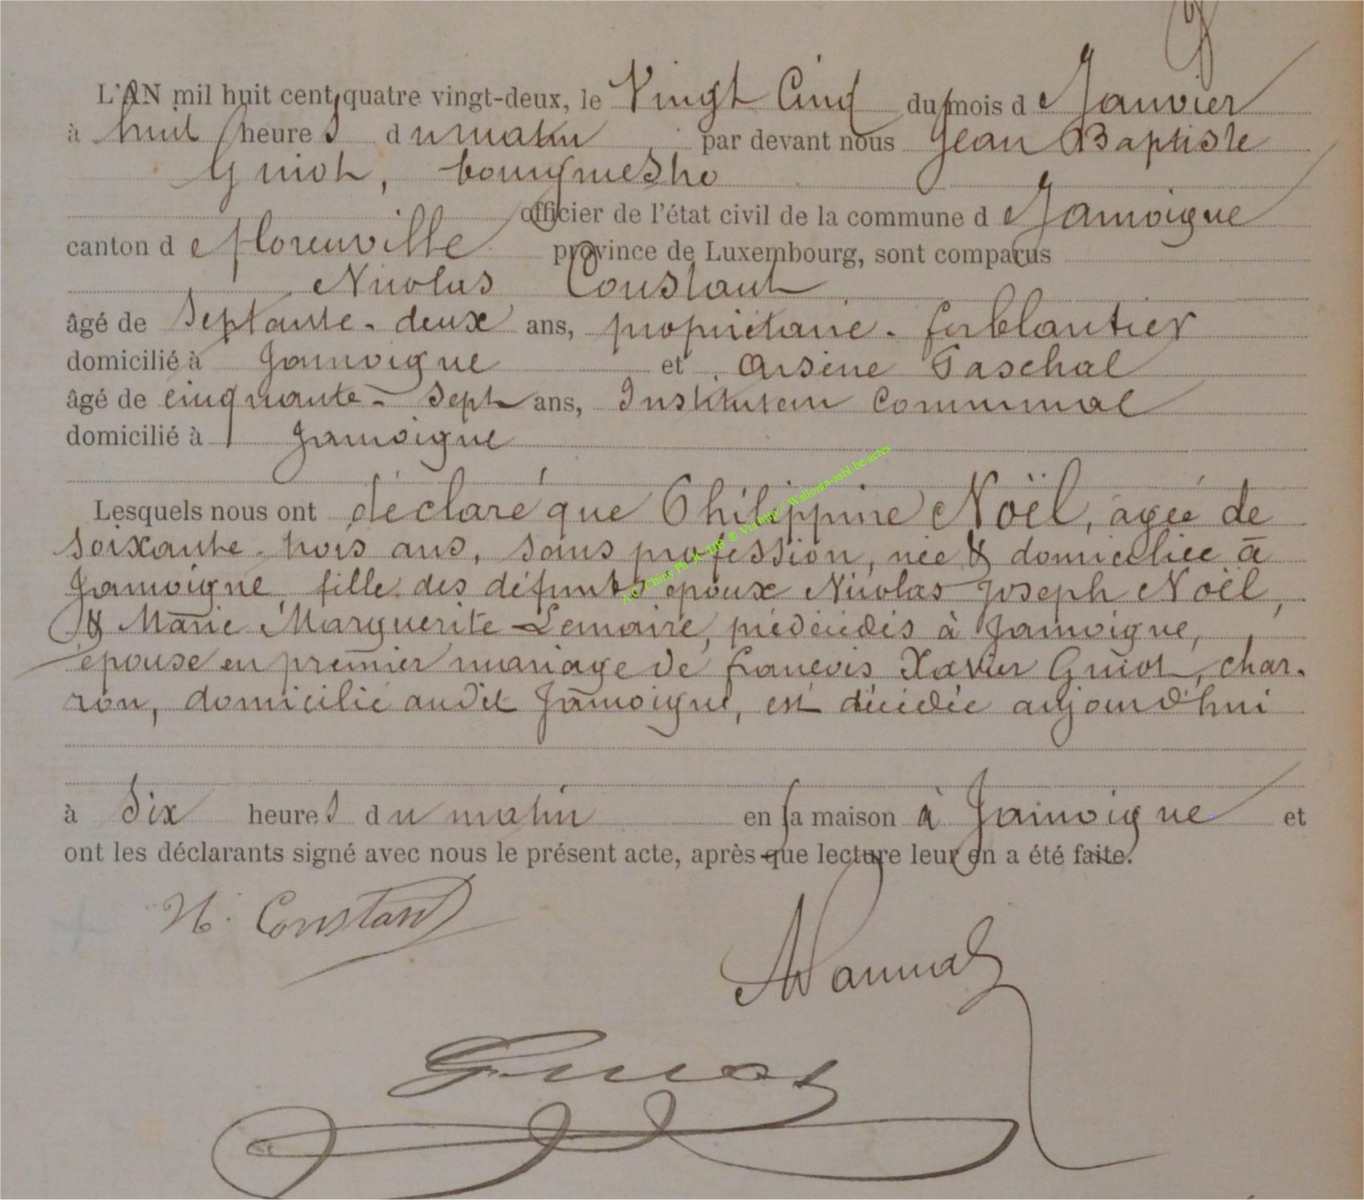 L'AN mil huit cent quatre vingt-deux, le Vingt Cinq du mois de Janvier
à huit heures du matin par devant nous Jean Baptiste
Guiot, bourgmestre
officier de l'état civil de la commune de Jamoigne
canton de florenville province de Luxembourg, sont comparus
Nicolas Constant
âgé de Septante-deux ans, propriétaire-ferblantier
domicilié à Jamoigne et Arsène Paschal
âgé de cinquante-sept ans, Instituteur Communal
domicilié à Jamoigne
Lesquels nous ont déclaré que Philippine Noël, agée de
soixante-trois ans, sans profession, née & domiciliée à
Jamoigne fille des défunts époux Nicolas Joseph Noël,
& Marie Marguerite Lemaire, prédécédés à Jamoigne,
épouse en premier mariage de françois Xavier Guiot, char-
ron, domicilié audit Jamoigne, est décédée aujourd'hui
à Six heures du matin en sa maison à Jamoigne et
ont les déclarants signé avec nous le présent acte, après que lecture leur en a été faite.
N. Constant
Guiot